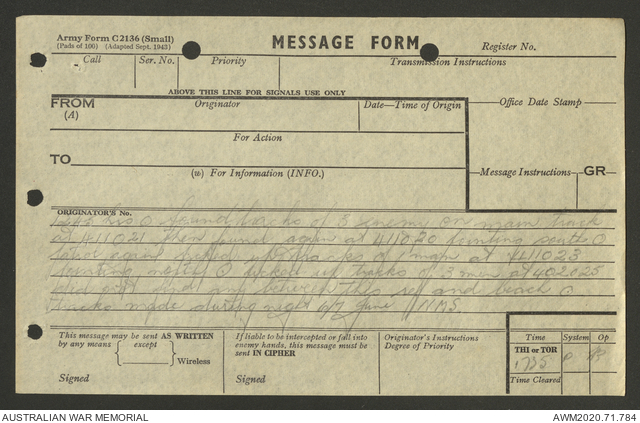 Army Form C2136 (Small)
(Pads of 100) (Adapted Sept. 1943)
MESSAGE FORM
Register No.
Call
Ser. No.
Priority
Transmission Instructions
ABOVE THIS LINE FOR SIGNALS USE ONLY
FROM
(A)
Originator
Date—Time of Origin
Office Date Stamp
For Action
TO
(w) For Information (INFO.)
Message Instructions
GR
ORIGINATOR'S No.
found tracks of 3 enemy on main track
at 411021 then found again at 411020 heading south O
again picked up tracks of 1 man at 411023
O picked up tracks of 3 men at 402025
did not find any between this and beach O
tracks made during night 6/7 June
This message may be sent AS WRITTEN
by any means
except
Wireless
Signed
If liable to be intercepted or fall into
enemy hands, this message must be
sent IN CIPHER
Signed
Originator's Instructions
Degree of Priority
Time
System
Op
THI or TOR
1735
Time Cleared
AUSTRALIAN WAR MEMORIAL
AWM2020.71.784